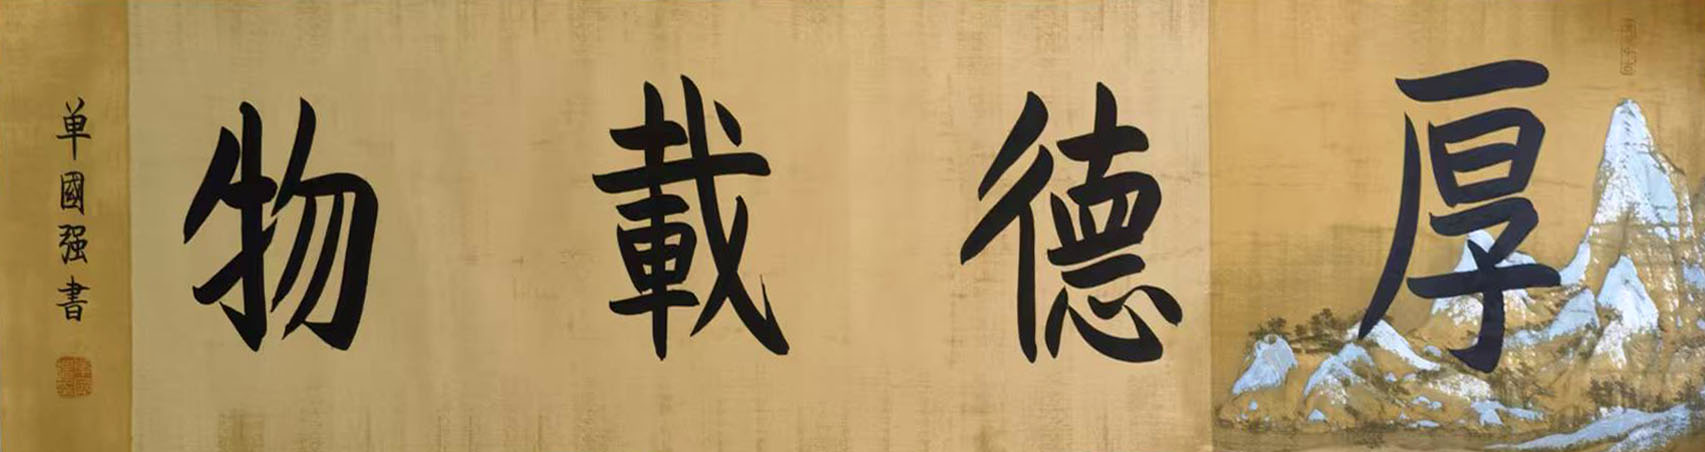 厚德載物
单國强書